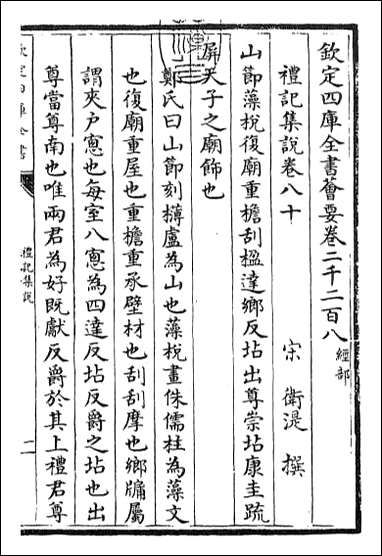 欽定四庫全書薈要卷二千二百八 經部
禮記集說卷八十
宋 衛湜 撰
山節藻梲復廟重檐刮楹達鄉反坫出尊崇坫康圭疏
屏天子之廟飾也
鄭氏曰山節刻欂盧為山也藻梲畫侏儒柱為藻文
也復廟重屋也重檐重承壁材也刮刮摩也鄉牖屬
謂夾戶窻也每室八窻為四達反坫反爵之坫也出
尊當尊南也唯兩君為好既獻反爵於其上禮君尊
欽定四庫全書
禮記集說